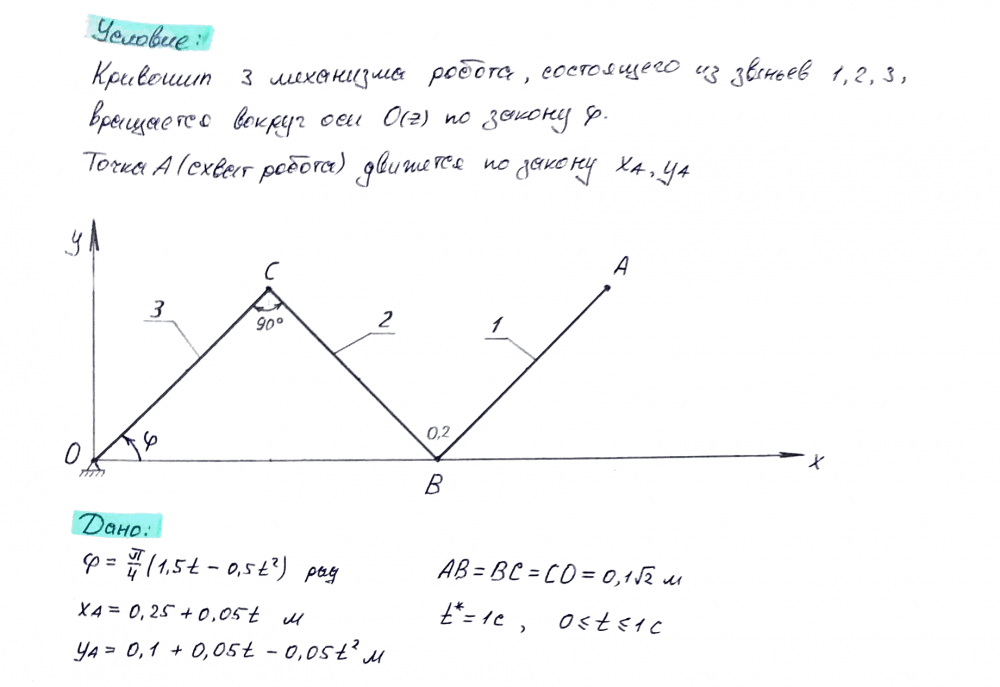 Условие:
Кривошип 3 механизма робота, состоящего из звеньев 1, 2, 3,
вращается вокруг оси O(z) по закону φ.
Точка A (схват робота) движется по закону xA, yA
y
C
A
3
90°
2
1
φ
0,2
O
B
x
Дано:
φ = π/4 (1,5t - 0,5t²) рад
AB = BC = CO = 0,1√2 м
xA = 0,25 + 0,05t м
t* = 1c , 0 ≤ t ≤ 1 c
yA = 0,1 + 0,05t - 0,05t² м